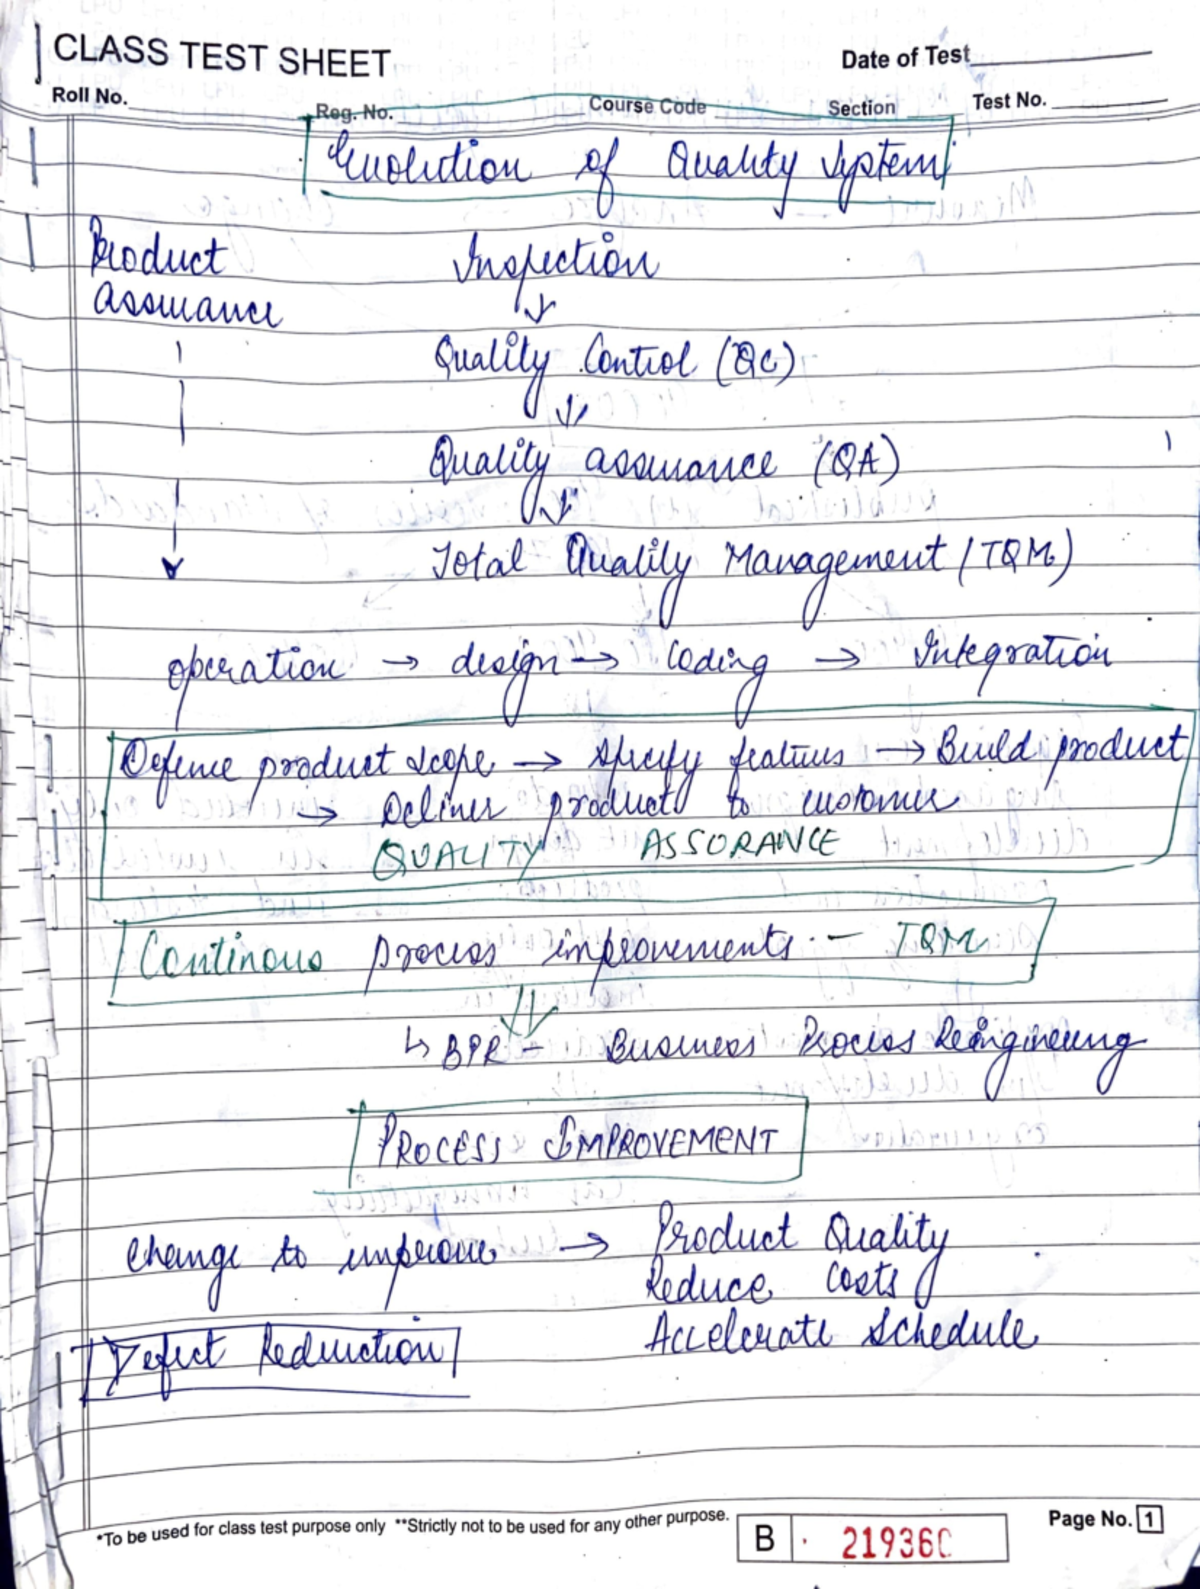 CLASS TEST SHEET
Date of Test
Roll No. Reg. No. Course Code Section Test No.
Evolution of Quality System
Product Inspection
assurance
Quality Control (QC)
Quality assurance (QA)
Total Quality Management (TQM)
operation → design → Coding → Integration
Defence product scope → Specify features → Build product
→ Deliver product to customer
QUALITY ASSORANCE
Continous process improvements. - TQM
↳ BPR - Business Process Reengineering
PROCESS IMPROVEMENT
Change to improve → Product Quality
Reduce Costs
Accelerate Schedule
Defect Reduction
*To be used for class test purpose only **Strictly not to be used for any other purpose.
B 219360
Page No. 1